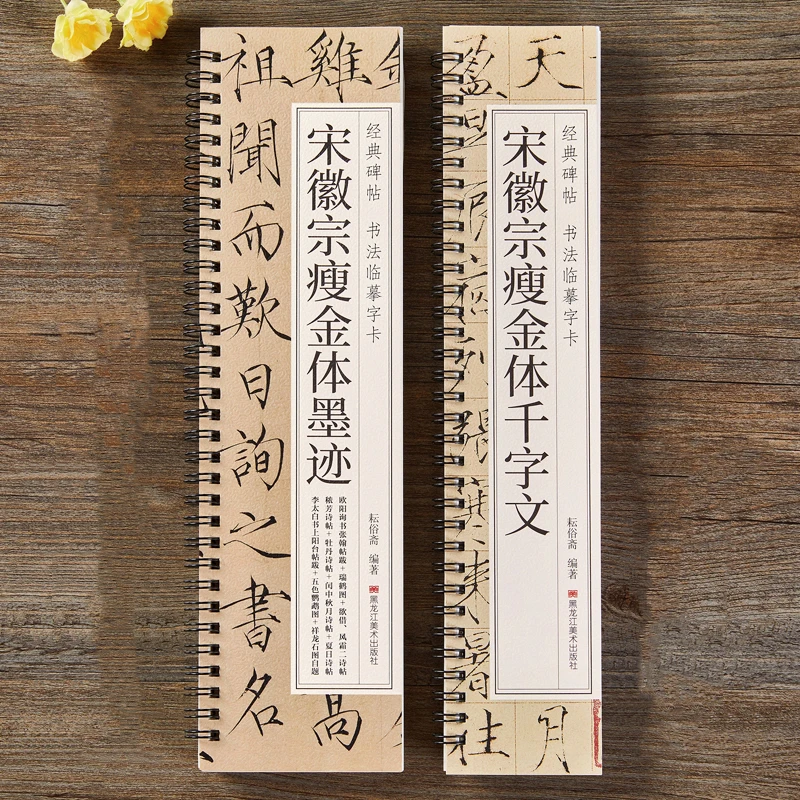 经典碑帖 书法临摹字卡
宋徽宗瘦金体墨迹
耘俗斋 编著
黑龙江美术出版社
欧阳询书张翰帖跋+瑞鹤图+欲借、风霜二诗帖
秾芳诗帖+牡丹诗帖+闰中秋月诗帖+夏日诗帖
李太白书上阳台帖跋+五色鹦鹉图+祥龙石图自题
雞
高
祖聞而歎日詢之書名
经典碑帖 书法临摹字卡
宋徽宗瘦金体千字文
耘俗斋 编著
黑龙江美术出版社
天
月
盈
列張寒來暑往